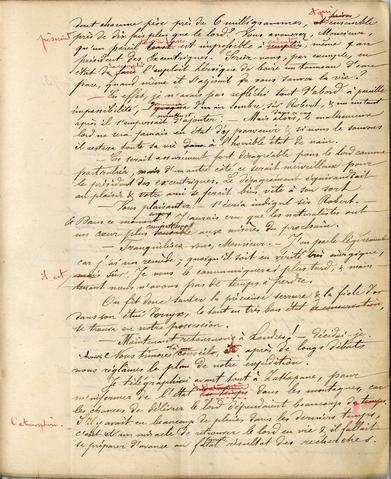 dont chacune pèse près de 6 milligrammes, et ensemble
près de dix fois plus que le lord? Vous avouerez, Monsieur,
qu'un pareil est impossible à remplir même par
président des Excentriques. Seriez-vous, par exemple, en
état de l'exploit héroïque de boire un tonneau d'une
fois, quand même il s'agissait de vous sauver la vie?
En effet, je n'avais pas réfléchi tout d'abord à pareille
impossibilité, d'un air sombre, Sir Robert, & un instant
après il s'empressait d'ajouter: — Mais alors, le malheureux
lord ne sera jamais en état de & si nous le sauvons
il restera toute sa vie dans l'horrible état de nain.
— Ce serait assurément fort désagréable pour le lord comme
particulier, mais d'un autre côté ce serait merveilleux pour
le président des excentriques. Le dérangement équivaudrait
au plaisir & votre ami se ferait bien vite à son sort
— Vous plaisantez — s'écria indigné sir Robert. —
Dans ce moment! J'aurais cru que les naturalistes ont
un cœur plus aux misères du prochain.
— Tranquilisez-vous, Monsieur. — J'en parle légèrement
car j'ai un remède, quoiqu'il soit en vérité très énergique,
il est sûr. Je vous le communiquerai plus tard, & main-
tenant nous n'avons pas de temps à perdre.
On fit donc sauter la précieuse serrure & la fiole d'or
dans son étui, le tout en très bon état
se trouva en notre possession.
— Maintenant retournons à Londres! — décidai-je
nous tînmes conseils, & après de longs débats
nous réglâmes le plan de notre expédition.
Je télégraphiai avant tout à, pour
m'informer de l'état du temps dans les montagnes, car
les chances de délivrer le lord dépendaient beaucoup
S'il y avait eu beaucoup de pluies dans les derniers temps,
c'eût été un miracle de retrouver le lord en vie & il fallait
se préparer d'avance au fatal résultat des recherches.